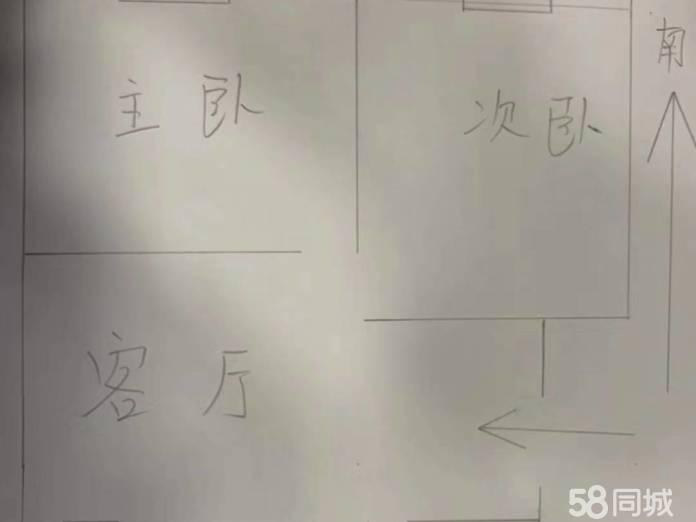 南
主卧
次卧
客厅
58同城